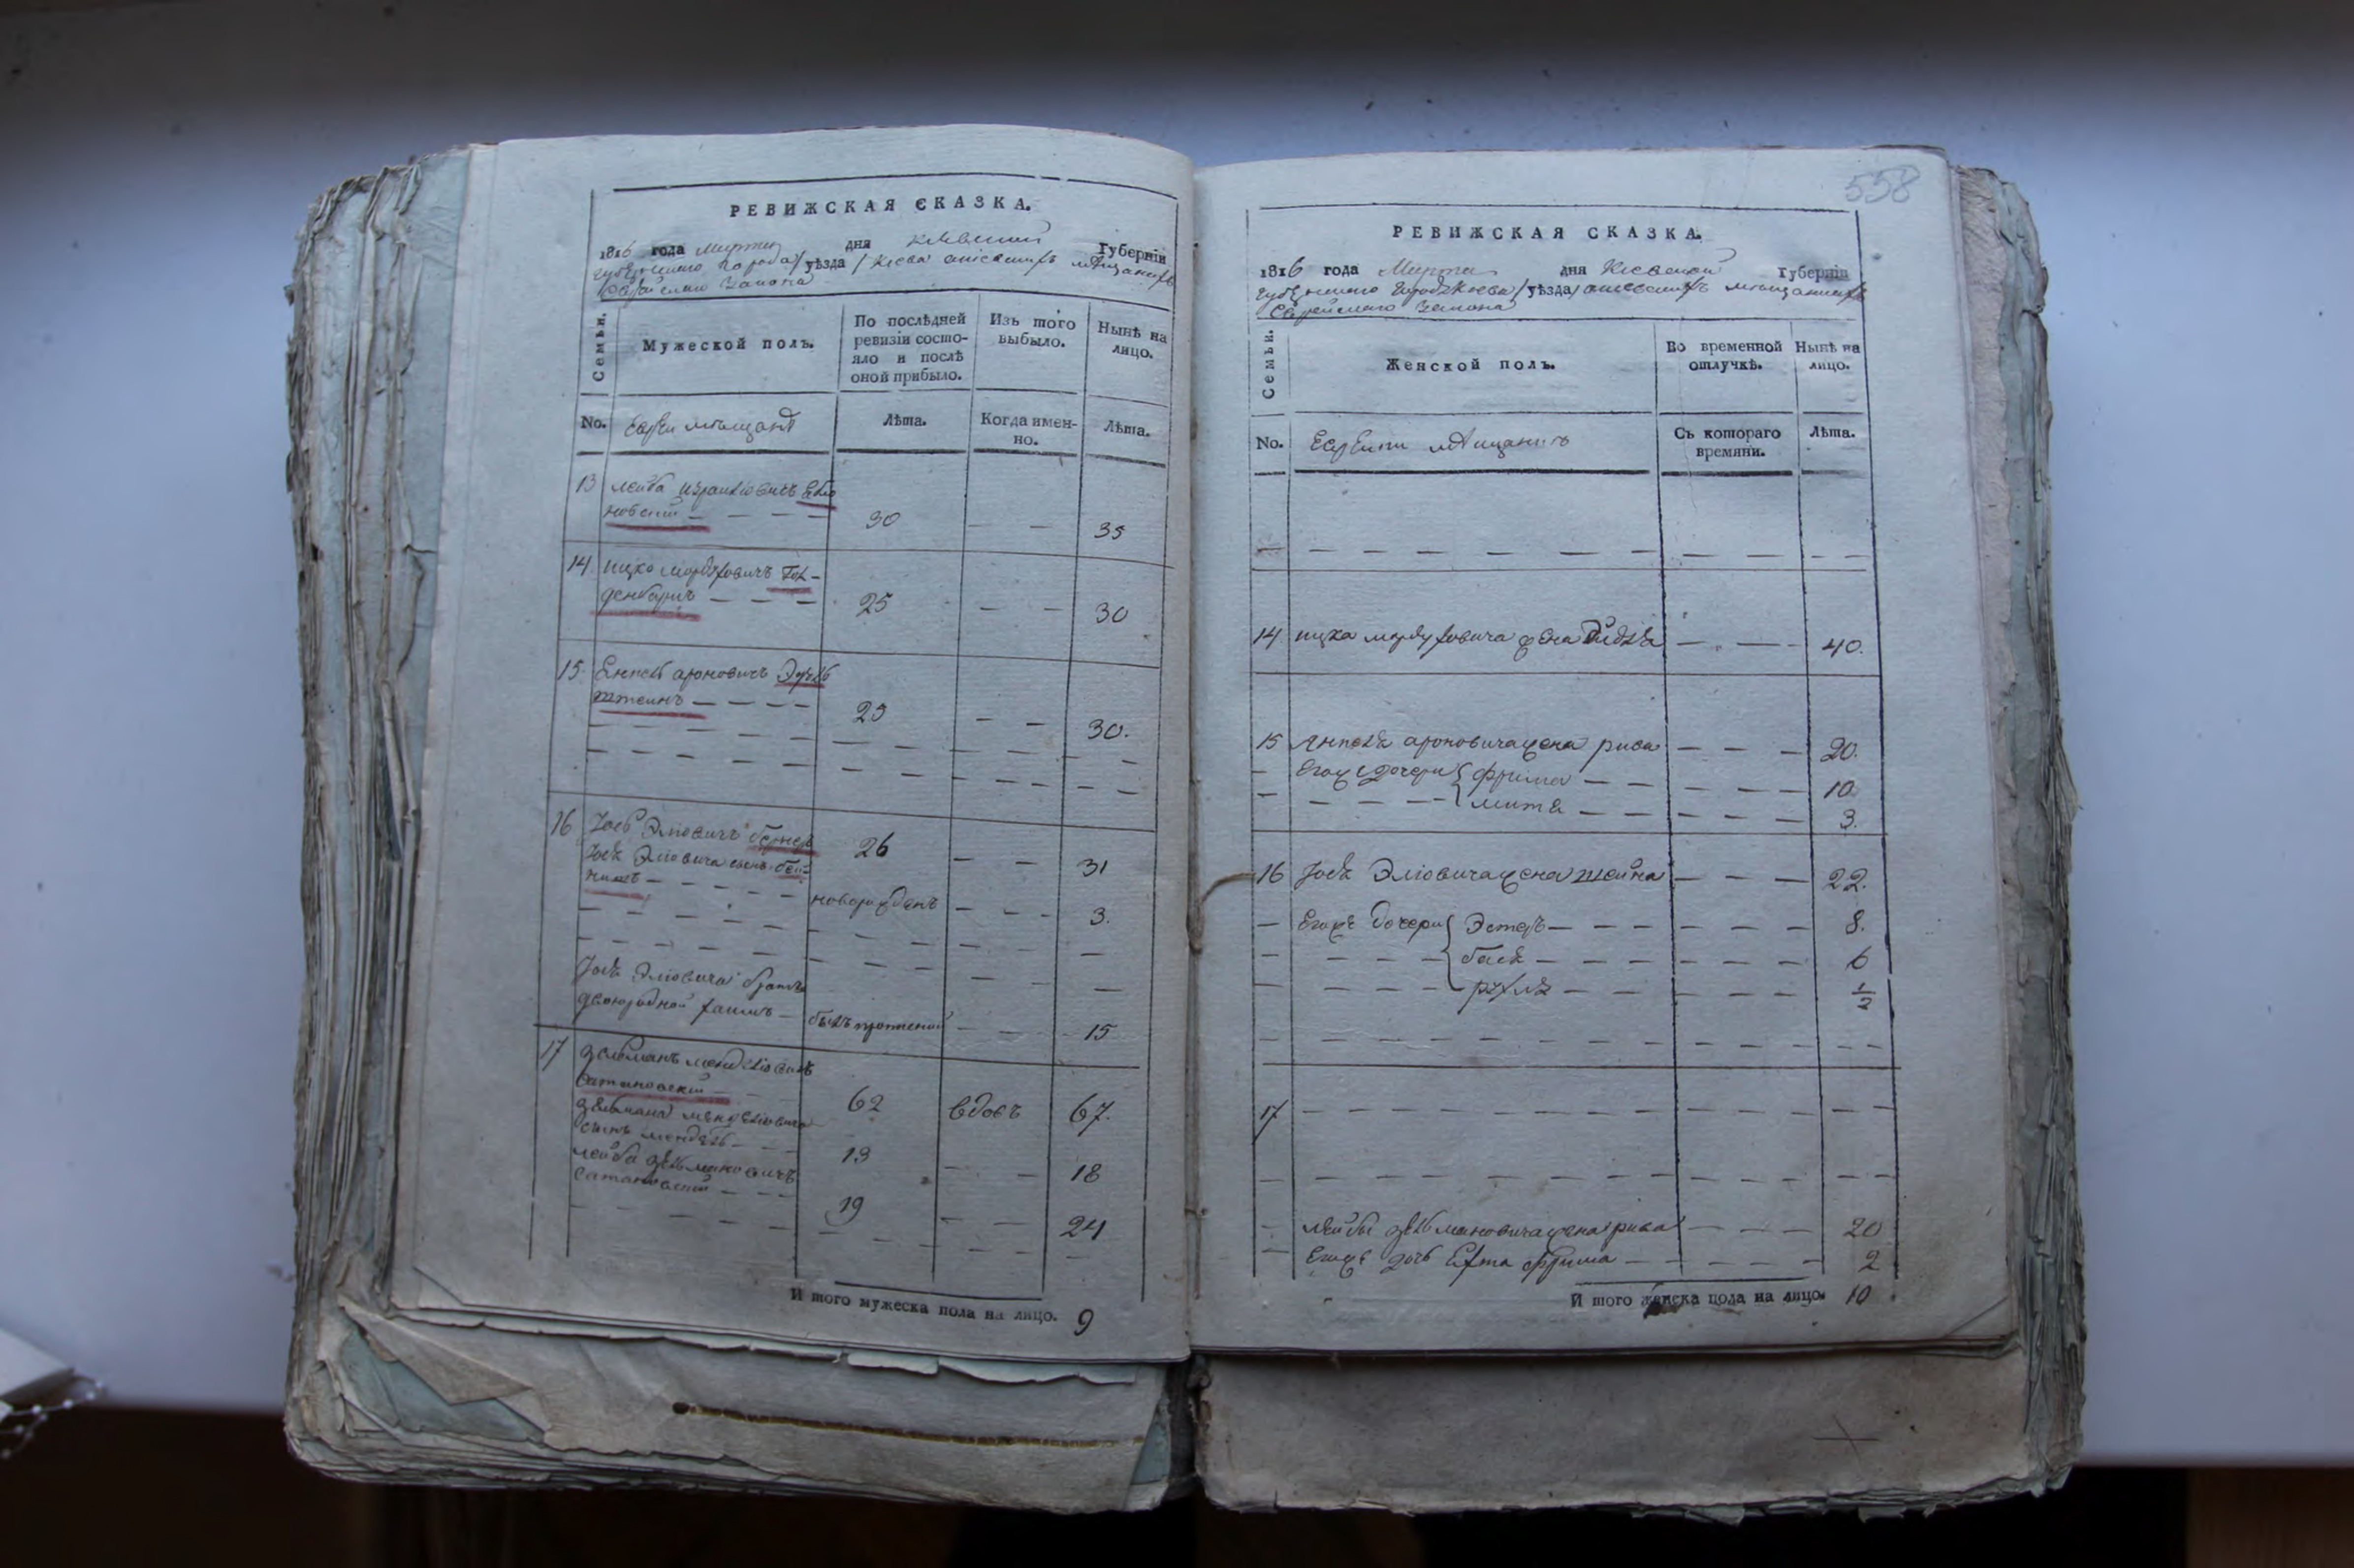 РЕВИЖСКАЯ СКАЗКА.
1816 года Марта дня Киевской Губерніи
губернского города / уѣзда / Киева мѣщанъ
Еврейского Закона
Семьи.
Мужеской полъ.
По послѣдней ревизіи состояло и послѣ оной прибыло.
Изъ того выбыло.
Нынѣ на лицо.
No.
Евреи мѣщане
Лѣта.
Когда именно.
Лѣта.
13 Лейба Израилiовичъ
новский — — — — 30 — — 35
14. Ицко Мордуховичъ Гол-
денбергъ — — — 25 — — 30
15. Янкель ароновичъ
штеинъ — — — — 25 — — 30.
16 Іось Эліовичъ 26 — — 31
Іося Эліовича сынъ бей-
нишъ — — — — новорожденъ — — — 3.
Іося Эліовича братъ
двоюродной хаимъ — былъ прописной — — — 15
17 Зельманъ менделіовичъ
Сатановский — 62 вдовъ 67.
Зельмана менделіовича
сынъ мендель — — 13 — — 18
лейба Зельмановичъ
сатановский — — — 19 — — 24
И того мужеска пола на лицо. 9
558
РЕВИЖСКАЯ СКАЗКА.
1816 года Марта дня Киевской Губерніи
губернского города Киева / уѣзда / мѣщанъ
Еврейского Закона
Семьи.
Женской полъ.
Во временной отлучкѣ.
Нынѣ на лицо.
No.
Евреики мѣщанки
Съ котораго времяни.
Лѣта.
14. ицка мордуховича жена — — — 40.
15 Янкеля ароновича жена рива — — — 20.
— Егожъ дочери { фрима — — — — — 10
— — — — — { — — — — — 3.
16 Іося Эліовича жена шейна — — — 22.
— Егожъ дочери { Эстеръ — — — — — — 8.
— — — — — { бася — — — — — — 6
— — — — — { рухля — — — — — — 1/2
17 — — — — — — — —
— лейбы зельмановича жена рива — — — 20
— Егожъ дочь фрима — — — — 2
И того женска пола на лицо. 10